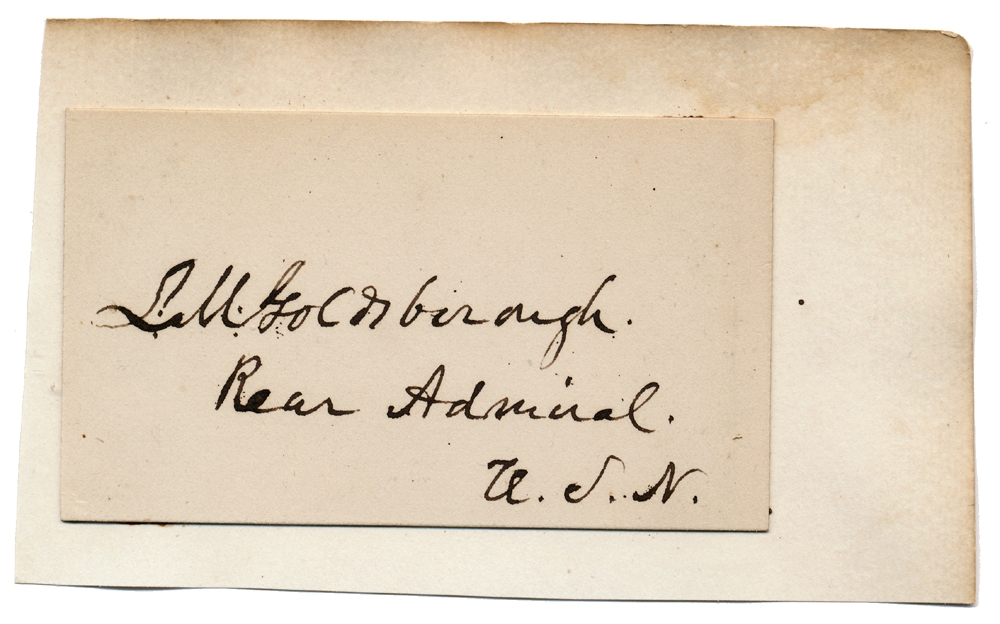 L. M. Goldsborough.
Rear Admiral.
U. S. N.